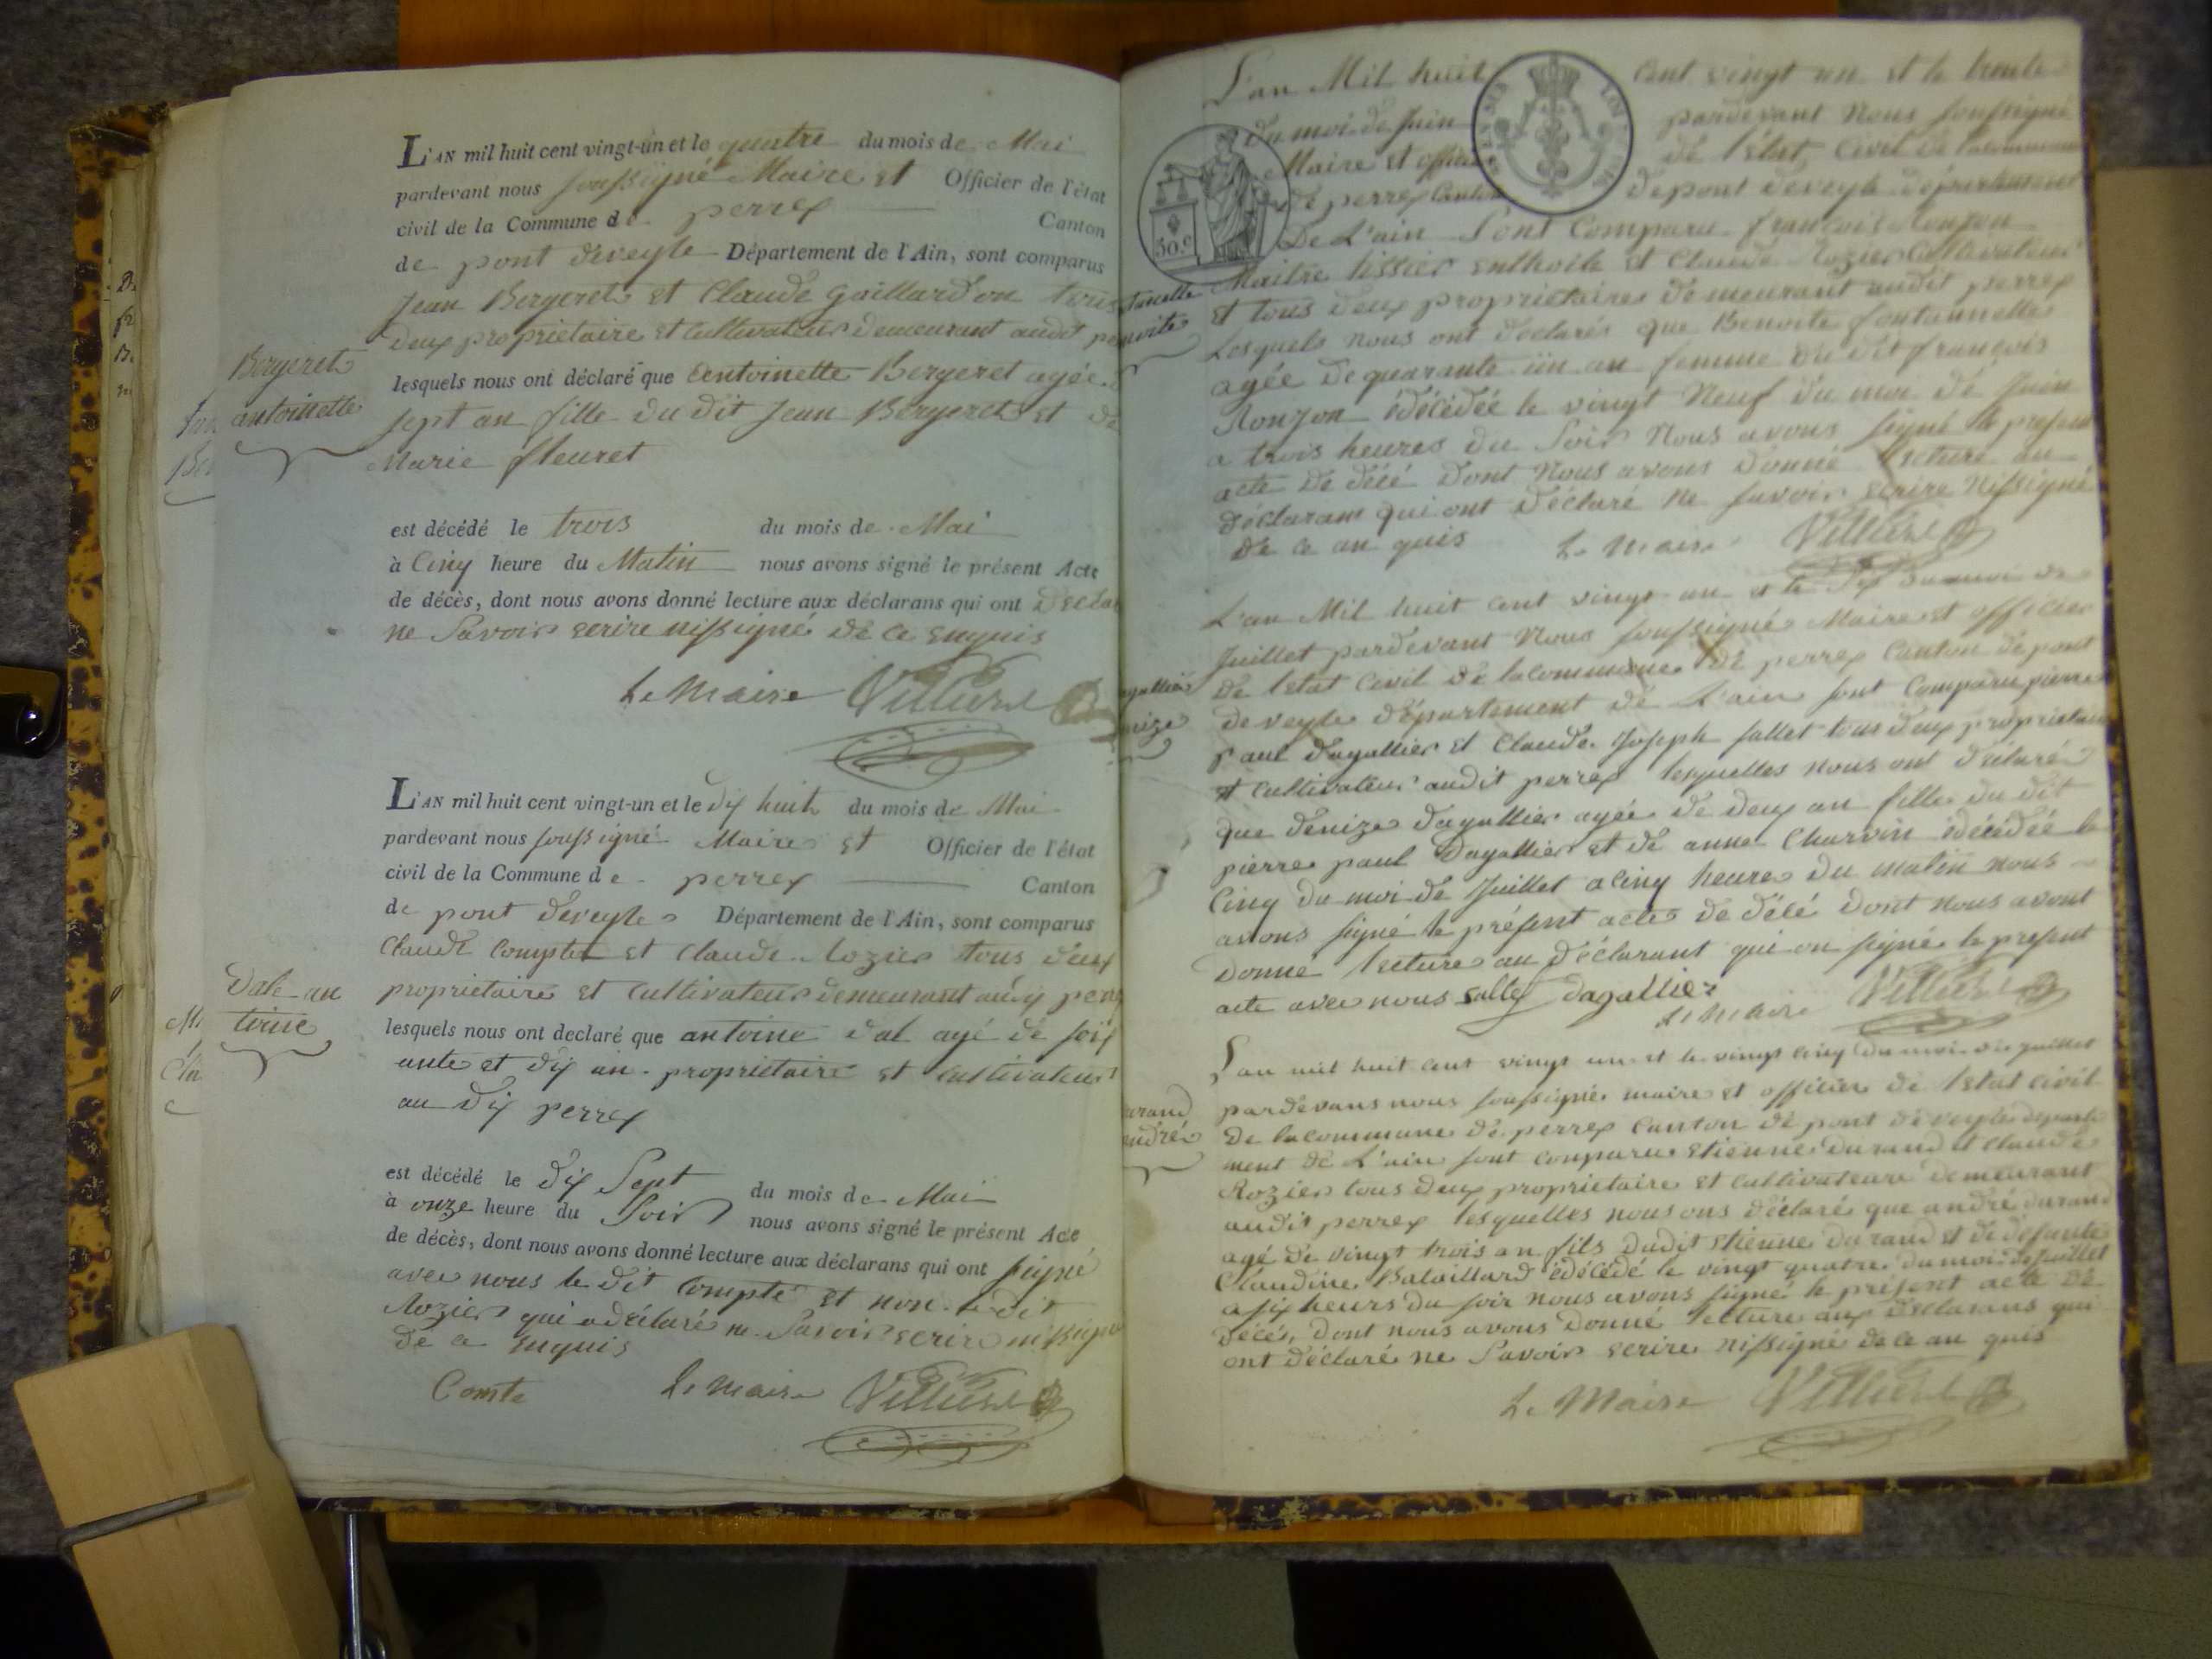 Bergeret
antoinette
L'AN mil huit cent vingt-un et le quatre du mois de Mai
pardevant nous soussigné Maire et Officier de l'état
civil de la Commune de perrex Canton
de pont deveyle Département de l'Ain, sont comparus
Jean Bergeret et Claude Gaillardon tous
deux proprietaire et cultivateur demeurant audit
lesquels nous ont déclaré que Antoinette Bergeret agée
sept an fille du dit Jean Bergeret et de
Marie fleuret
est décédé le trois du mois de Mai
à Cinq heure du Matin nous avons signé le présent Acte
de décès, dont nous avons donné lecture aux déclarans qui ont
ne Savoir ecrire nissigné de ce enquis
Le Maire Villiere
Dale an
toine
L'AN mil huit cent vingt-un et le dix huit du mois de Mai
pardevant nous soussigné Maire et Officier de l'état
civil de la Commune de perrex Canton
de pont deveyle Département de l'Ain, sont comparus
Claude Compte et Claude Rozier tous deux
proprietaire et cultivateur demeurant
lesquels nous ont declaré que antoine dal agé de soix
ante et dix an propriétaire et cultivateur
au dix perrex
est décédé le dix Sept du mois de Mai
à onze heure du Soir nous avons signé le présent Acte
de décès, dont nous avons donné lecture aux déclarans qui ont signé
avec nous le dit Compte et non le dit
Rozier qui a déclaré ne Savoir ecrire
de ce enquis
Comte Le Maire Villiere
L'an Mil huit Cent vingt un et le trente
du moi de Juin pardevant Nous soussigné
Maire et officier de l'état Civil de la commune
de perrex Canton de pont deveyle département
De L'ain Sont Comparu françois Ronjon
30.c
Maitre tissier enthoile et Claude Rozier Cultivateur
et tous deux proprietaires demeurant audit perrex
Lesquels nous ont déclarés que Benoite fontannelle
agée de quarante un an femme du dit françois
Ronjon édécédée le vingt Neuf du moi de Juin
a trois heures du Soir Nous avons signé le present
acte de décé dont Nous avons donné lecture au
déclarans qui ont déclaré ne savoir ecrire nissigné
de ce an quis Le Maire Villiere
L'an Mil huit cent vingt un et le Six du moi de
Juillet pardevant Nous soussigné Maire et officier
de létat Civil de la commune de perrex Canton de pont
de veyle département de L'ain sont Comparu pierre
paul dagallier et Claude Joseph sallet tous deux proprietaire
et cultivateur audit perrex lesquelles nous ont déclaré
que denize dagallier agée de deux an fille du dit
pierre paul Dagallier et de anne Charvin édécédée le
Cinq du moi de Juillet a Cinq heure du matin nous
avons signé le présent acte de décé dont nous avont
donné lecture au déclarant qui on signé le present
acte avec nous dagallier
Le Maire Villiere
L'an mil huit cent vingt un et le vingt cinq du moi de juillet
pardevans nous soussigné maire et officier de létat civil
de la commune de perrex Canton de pont de veyle departe
ment de L'ain sont comparu etienne durand et claude
Rozier tous deux proprietaire et cultivateur demeurant
audit perrex lesquelles nous ons déclaré que andré durand
agé de vingt trois an fils dudit etienne durand et de defunte
Claudine Bataillard édécédé le vingt quatre du moi de Juillet
a six heurs du soir nous avons signé le présent acte de
décés, dont nous avons donné lecture aux déclarans qui
ont déclaré ne Savoir ecrire nissigné de ce an quis
Le Maire Villiere